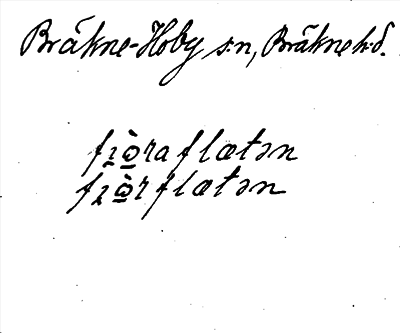 Bräkne-Hoby s:n, Bräkne hd.
fi̯ò̱raflætən
fi̯ò̱rflætən